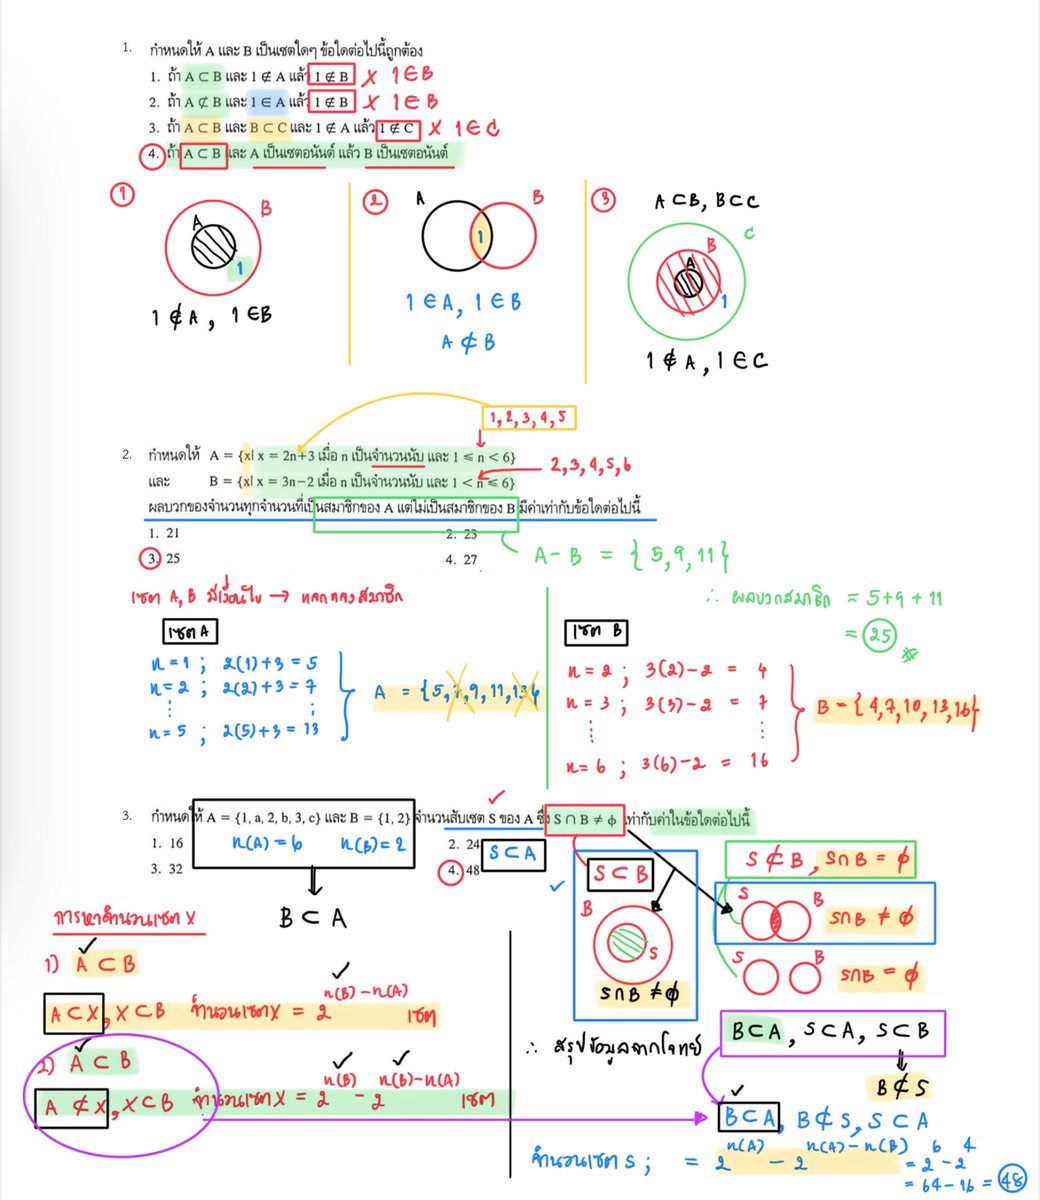 1. กำหนดให้ A และ B เป็นเซตใดๆ ข้อใดต่อไปนี้ถูกต้อง
1. ถ้า A ⊂ B และ 1 ∉ A แล้ว 1 ∉ B × 1 ∈ B
2. ถ้า A ⊄ B และ 1 ∈ A แล้ว 1 ∉ B × 1 ∈ B
3. ถ้า A ⊂ B และ B ⊂ C และ 1 ∉ A แล้ว 1 ∉ C × 1 ∈ C
4. ถ้า A ⊂ B และ A เป็นเซตอนันต์ แล้ว B เป็นเซตอนันต์
① A B 1
1 ∉ A , 1 ∈ B
② A B 1
1 ∈ A , 1 ∈ B
A ⊄ B
③ A ⊂ B , B ⊂ C
C B A 1
1 ∉ A , 1 ∈ C
1, 2, 3, 4, 5
2. กำหนดให้ A = {x| x = 2n+3 เมื่อ n เป็นจำนวนนับ และ 1 ⩽ n < 6}
2, 3, 4, 5, 6
และ B = {x| x = 3n−2 เมื่อ n เป็นจำนวนนับ และ 1 < n ⩽ 6}
ผลบวกของจำนวนทุกจำนวนที่เป็นสมาชิกของ A แต่ไม่เป็นสมาชิกของ B มีค่าเท่ากับข้อใดต่อไปนี้
1. 21 2. 23
3. 25 4. 27
A − B = { 5, 9, 11 }
∴ ผลบวกสมาชิก = 5 + 9 + 11
= 25
เซต A, B มีเงื่อนไข → แจกแจงสมาชิก
เซต A
n = 1 ; 2(1)+3 = 5
n = 2 ; 2(2)+3 = 7
⋮ ⋮
n = 5 ; 2(5)+3 = 13
A = {5, 7, 9, 11, 13}
เซต B
n = 2 ; 3(2)−2 = 4
n = 3 ; 3(3)−2 = 7
⋮ ⋮
n = 6 ; 3(6)−2 = 16
B = { 4, 7, 10, 13, 16}
3. กำหนดให้ A = {1, a, 2, b, 3, c} และ B = {1, 2} จำนวนสับเซต S ของ A ซึ่ง S ∩ B ≠ ϕ เท่ากับค่าในข้อใดต่อไปนี้
1. 16 2. 24
3. 32 4. 48
n(A) = 6 n(B) = 2
S ⊂ A
B ⊂ A
S ⊂ B
B S
S ∩ B ≠ ϕ
S ⊄ B , S ∩ B = ϕ
S B S ∩ B ≠ ϕ
S B S ∩ B = ϕ
การหาจำนวนเซต X
1) A ⊂ B
A ⊂ X , X ⊂ B จำนวนเซต X = 2^n(B) − n(A) เซต
2) A ⊂ B
A ⊄ X , X ⊂ B จำนวนเซต X = 2^n(B) − 2^n(B) − n(A) เซต
∴ สรุปข้อมูลจากโจทย์ B ⊂ A , S ⊂ A , S ⊂ B
B ⊄ S
B ⊂ A, B ⊄ S, S ⊂ A
จำนวนเซต S ; = 2^n(A) − 2^n(A) − n(B) = 2^6 − 2^4
= 64 − 16 = 48